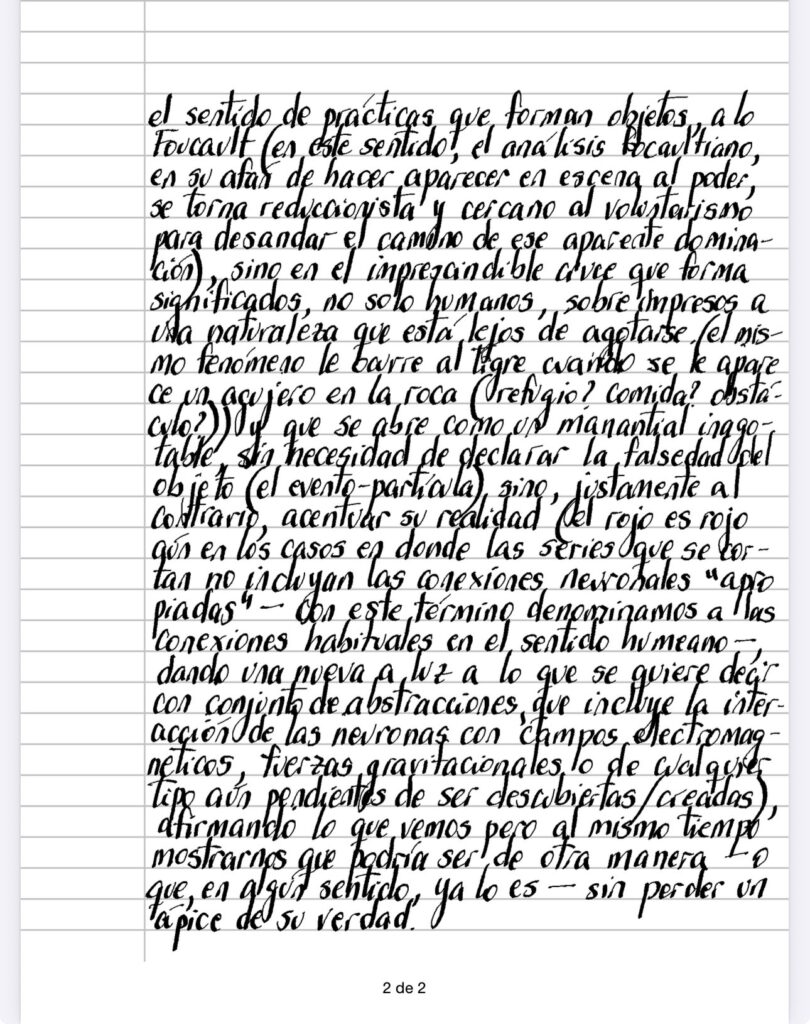 el sentido de prácticas que forman objetos, a lo
Foucault (en este sentido, el análisis focaultiano,
en su afán de hacer aparecer en escena al poder,
se torna reduccionista y cercano al voluntarismo
para desandar el camino de ese aparente domina-
ción), sino en el imprezcindible cruce que forma
significados, no solo humanos, sobre impresos a
una naturaleza que está lejos de agotarse (el mis-
mo fenómeno le ocurre al tigre cuando se le apare
ce un agujero en la roca (¿refugio? comida? obstá-
culo?)) y que se abre como un manantial inago-
table, sin necesidad de declarar la falsedad del
objeto (el evento-partícula), sino, justamente al
contrario, acentuar su realidad (el rojo es rojo
aún en los casos en donde las series que se cor-
tan no incluyan las conexiones neuronales "apro
piadas" — con este término denominamos a las
conexiones habituales en el sentido humeano —,
dando una nueva a luz a lo que se quiere decir
con conjunto de abstracciones, que incluye la inter-
acción de las neuronas con campos electromag-
néticos, fuerzas gravitacionales, o de cualquier
tipo aún pendientes de ser descubiertas/creadas),
afirmando lo que vemos pero al mismo tiempo
mostrarnos que podría ser de otra manera — o
que, en algún sentido, ya lo es — sin perder un
ápice de su verdad.
2 de 2